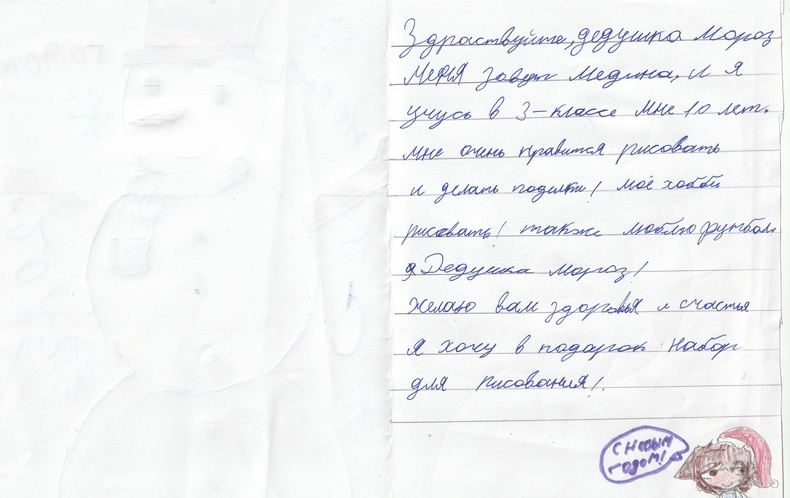 Здраствуйте, дедушка Мороз
меня зовут Медина, и я
учусь в 3-классе мне 10 лет.
мне очень нравится рисовать
и делать поделки! моё хобби
рисовать! также люблю футбол.
Дедушка мороз!
желаю вам здоровья и счастья
я хочу в подарок набор
для рисования!
С Новым
годом!